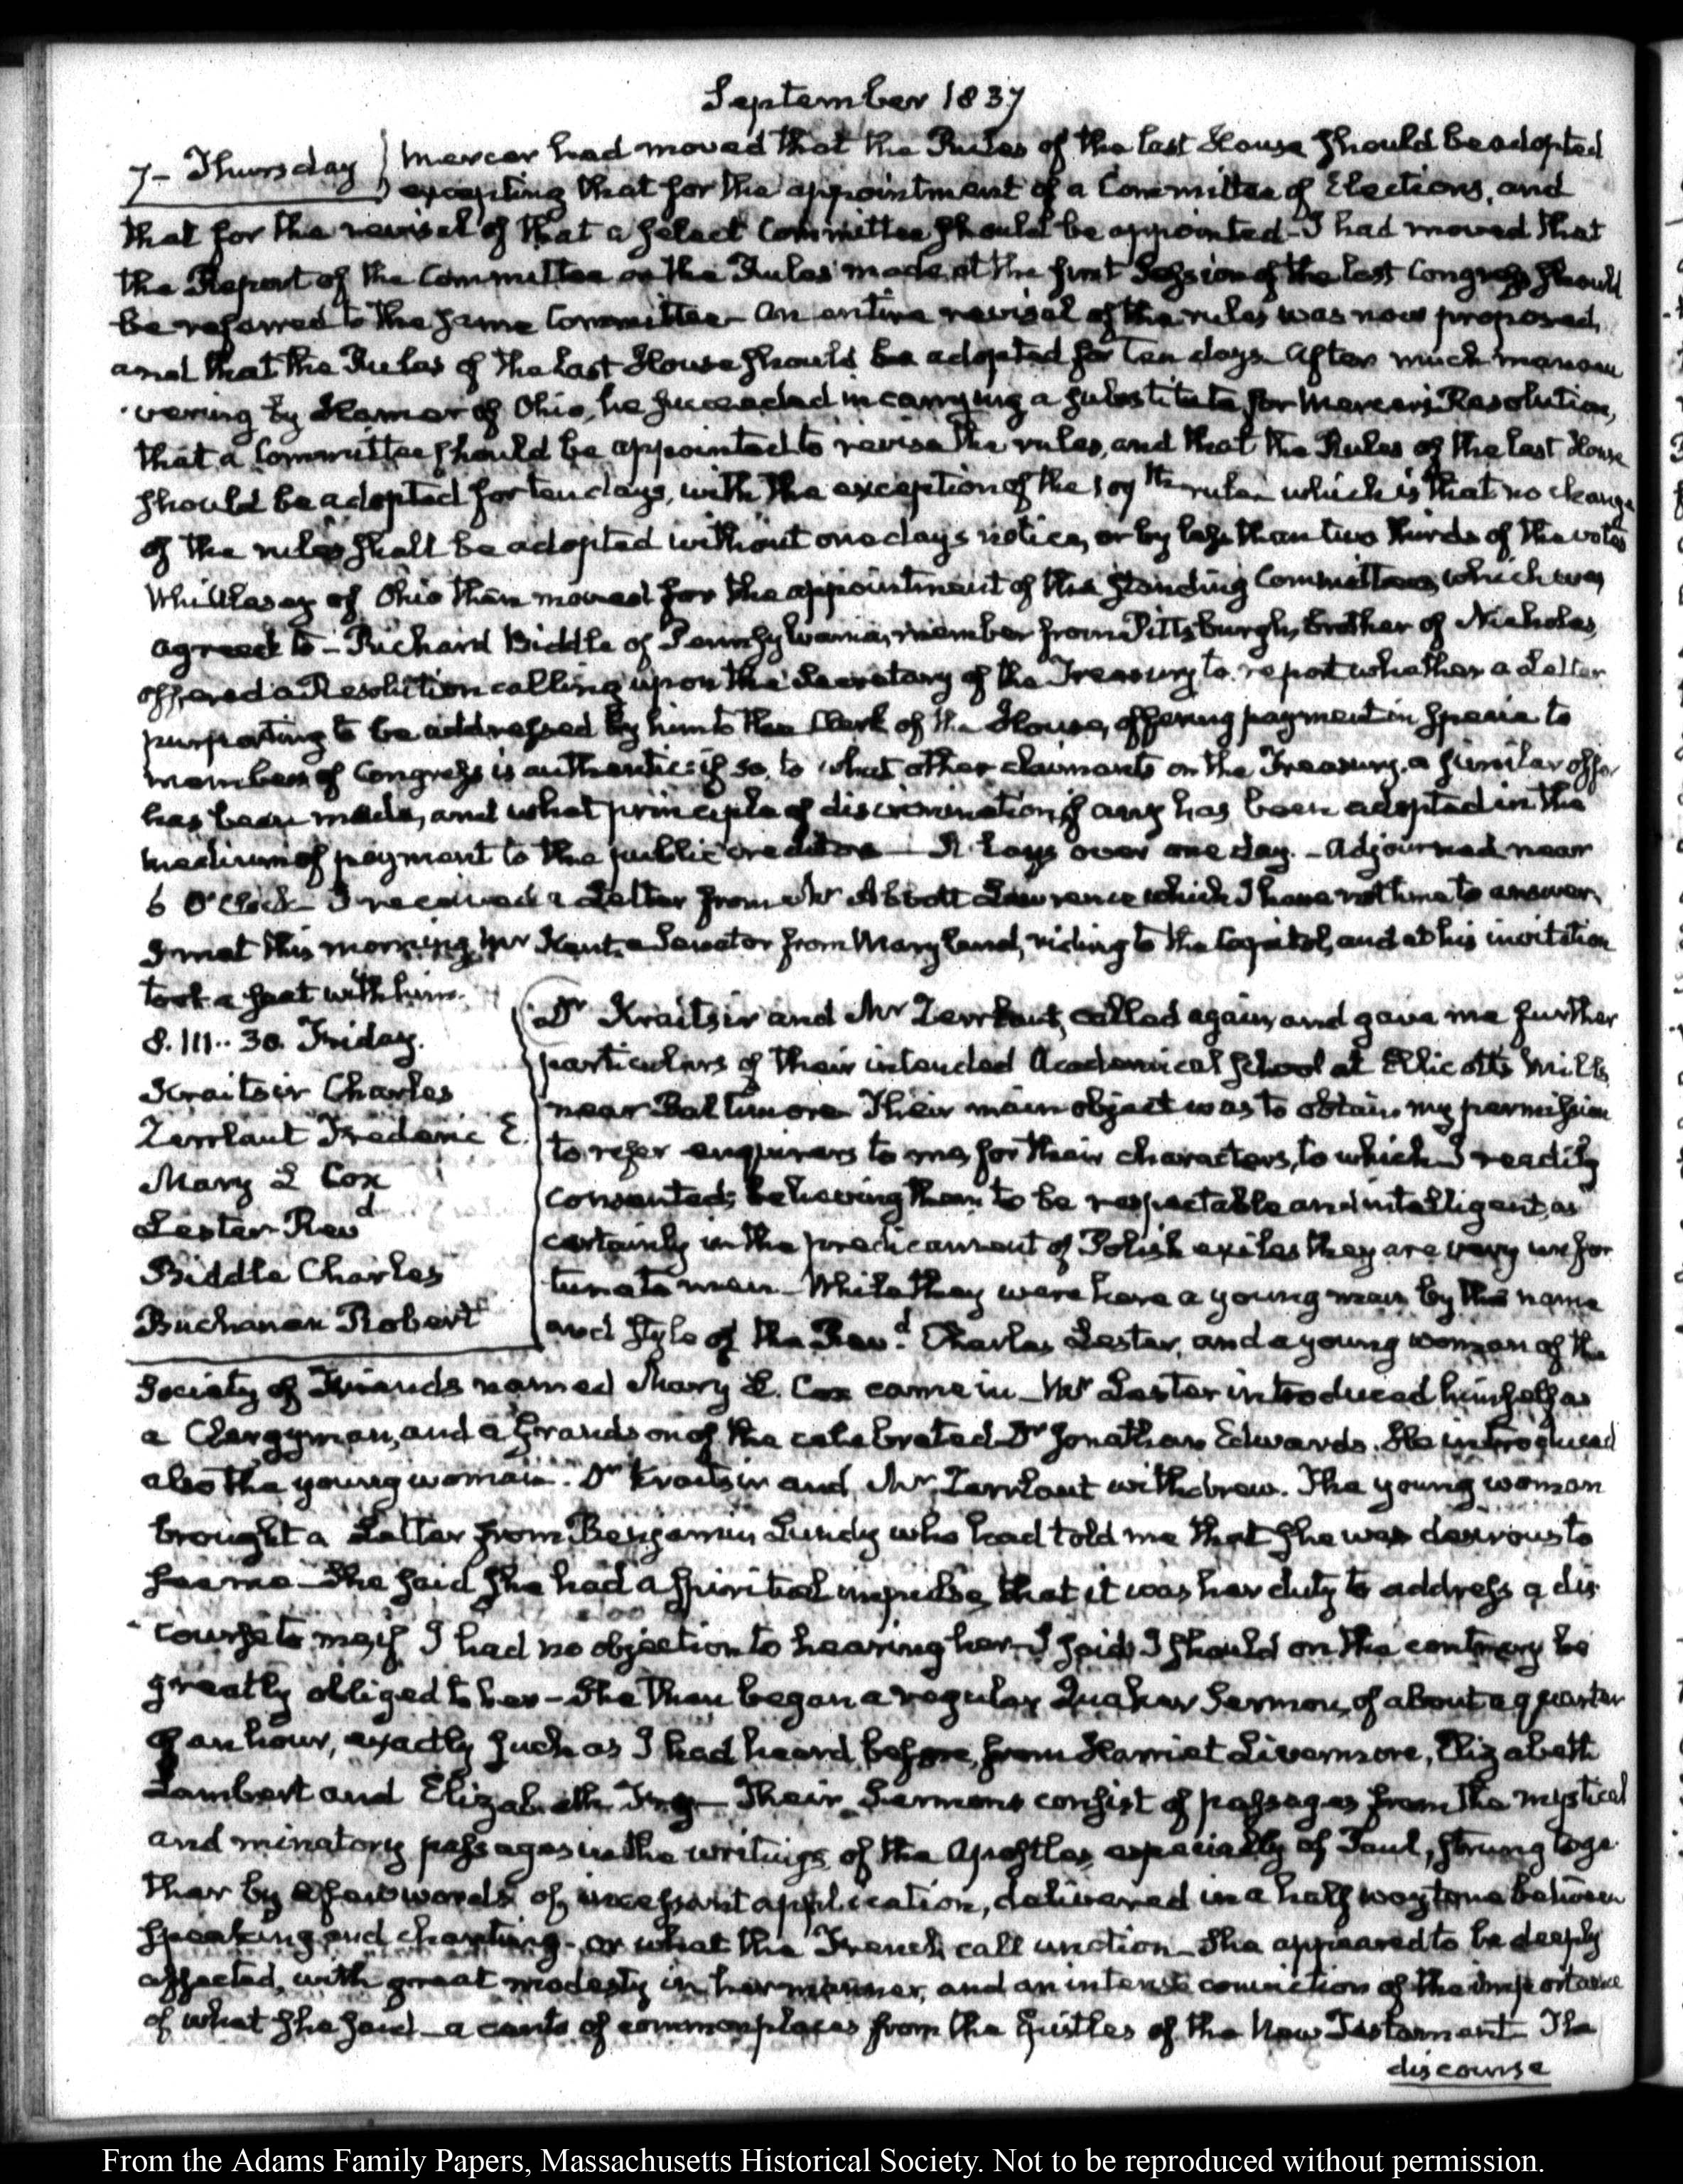 September 1837
7- Thursday } Mercer had moved that the Rules of the last House should be adopted
excepting that for the appointment of a Committee of Elections, and
that for the revisal of that a select Committee should be appointed - I had moved that
the Report of the Committee on the Rules made at the first Session of the last Congress should
be referred to the same Committee - An entire revisal of the rules was now proposed,
and that the Rules of the last House should be adopted for ten days. After much manoeu
vering by Hamer of Ohio, he succeeded in carrying a substitute for Mercer's Resolution,
that a Committee should be appointed to revise the rules, and that the Rules of the last House
should be adopted for ten days, with the exception of the 107th rule - which is that no change
of the rules shall be adopted without one days notice, or by less than two thirds of the votes
Whittlesey of Ohio then moved for the appointment of the standing Committees, which was
agreed to - Richard Biddle of Pennsylvania, member from Pittsburgh, brother of Nicholas,
offered a Resolution calling upon the Secretary of the Treasury to report whether a Letter
purporting to be addressed by him to the Clerk of the House, offering payment in specie to
members of Congress is authentic: if so, to what other claimants on the Treasury, a similar offer
has been made, and what principle of discrimination, if any has been adopted in the
medium of payment to the public creditors - It lays over one day. - Adjourned near
6 O'Clock - I received a Letter from Mr Abbott Lawrence which I have not time to answer.
I met this morning Mr Kent, a Senator from Maryland, riding to the Capitol, and at his invitation
took a seat with him.
8. III.. 30. Friday.
Kraitsir Charles
Zerrlaut Frederic E.
Mary L Cox
Lester Revd
Biddle Charles
Buchanan Robert
Dr Kraitsir and Mr Zerrlaut, called again, and gave me further
particulars of their intended Academical School at Ellicotts Mills
near Baltimore. Their main object was to obtain my permission
to refer enquirers to me, for their characters, to which I readily
consented; believing them to be respectable and intelligent, as
certainly in the predicament of Polish exiles they are very unfor
tunate men - While they were here a young man by the name
and style of the Revd. Charles Lester, and a young woman of the
Society of Friends named Mary L. Cox came in - Mr Lester introduced himself as
a Clergyman, and a Grandson of the celebrated Dr Jonathan Edwards. He introduced
also the young woman. Dr Kraitsir and Mr Zerrlaut withdrew. The young woman
brought a Letter from Benjamin Lundy who had told me that she was desirous to
see me - She said she had a spiritual impulse, that it was her duty to address a dis
course to me, if I had no objection to hearing her - I said I should on the contrary be
greatly obliged to her - She then began a regular Quaker Sermon, of about a quarter
of an hour, exactly such as I had heard before, from Harriet Livermore, Elizabeth
Lambert and Elizabeth Fry - Their Sermons consist of passages from the mystical
and minatory passages in the writings of the Apostles, especially of Paul, strung toge
ther by a few words of incessant application, delivered in a half way tone between
speaking and chanting - or what the French call unction - She appeared to be deeply
affected, with great modesty in her manner, and an intense conviction of the importance
of what she said - a cento of commonplaces from the Epistles of the New Testament The
discourse
From the Adams Family Papers, Massachusetts Historical Society. Not to be reproduced without permission.